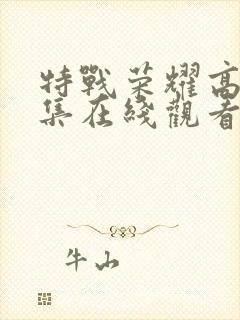 特戰荣耀高
集在綫觀看
牛山